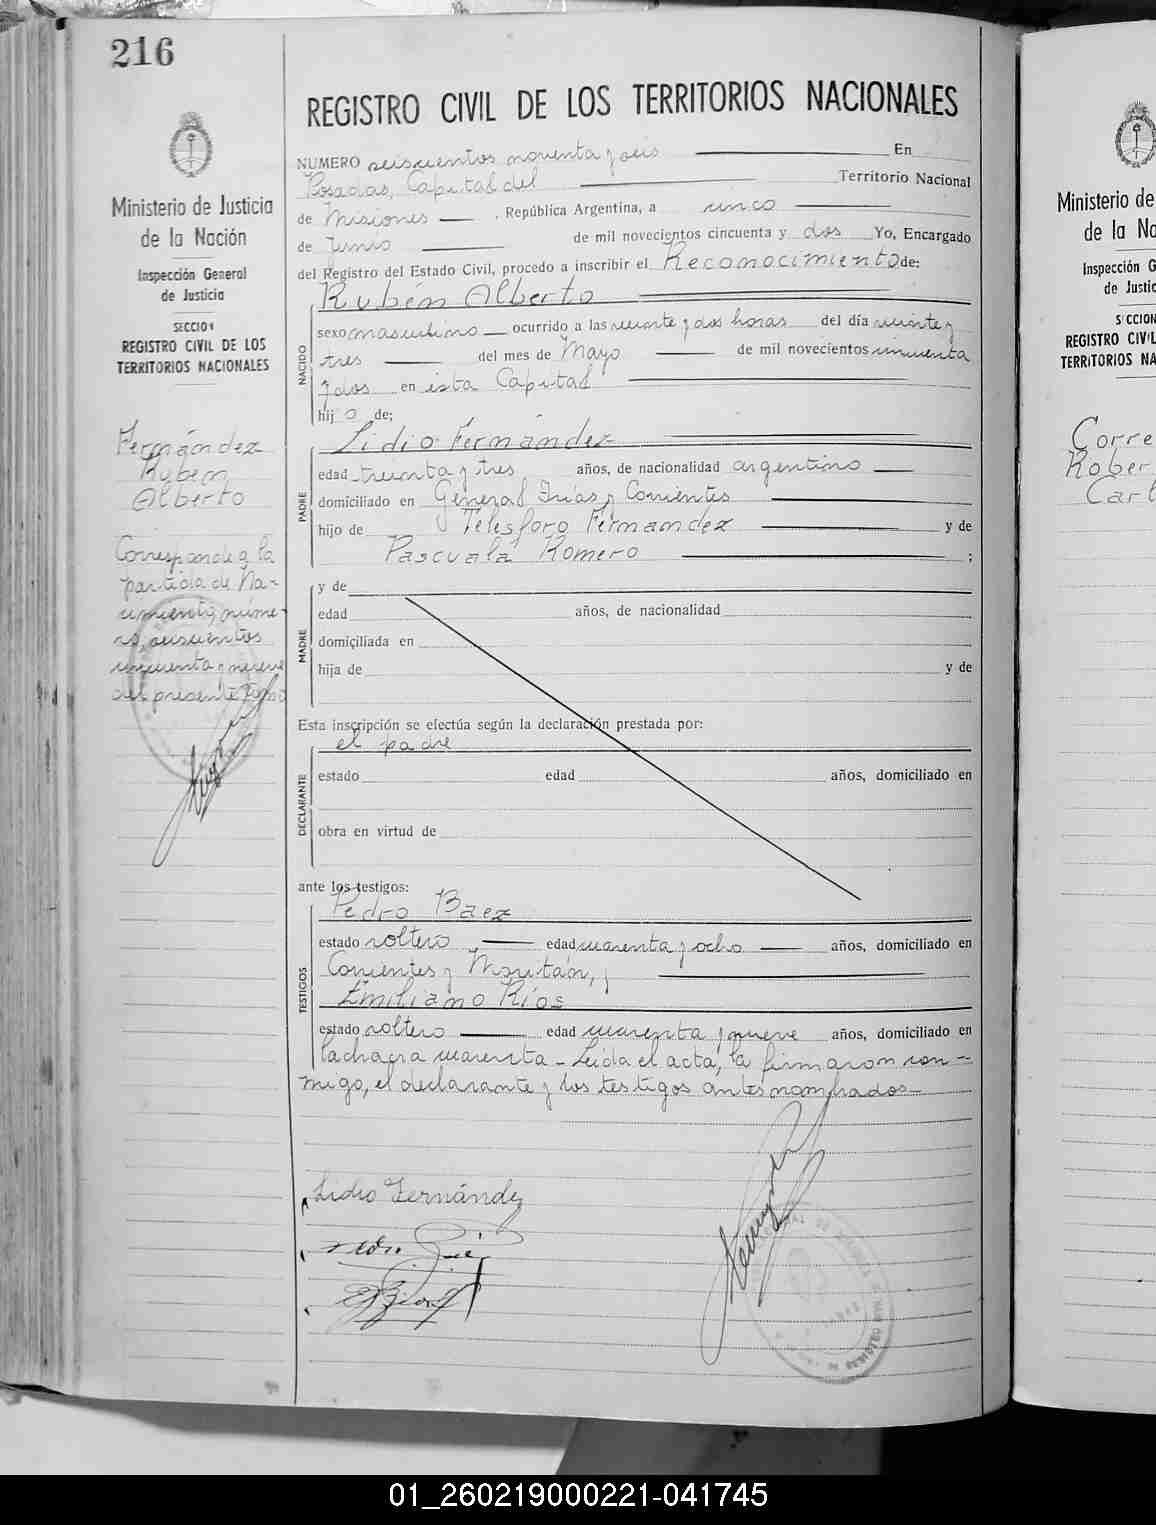 216
Ministerio de Justicia
de la Nación
Inspección General
de Justicia
SECCION
REGISTRO CIVIL DE LOS
TERRITORIOS NACIONALES
Fernández
Ruben
Alberto
Corresponde a la
partida de Na-
cimiento, núme-
ro, seiscientos
cincuenta y nueve
del presente Tomo
REGISTRO CIVIL DE LOS TERRITORIOS NACIONALES
NUMERO seiscientos noventa y seis En
Posadas, Capital del Territorio Nacional
de Misiones , República Argentina, a cinco
de Junio de mil novecientos cincuenta y dos Yo, Encargado
del Registro del Estado Civil, procedo a inscribir el Reconocimiento de:
Rubén Alberto
NACIDO
sexo masculino ocurrido a las veinte y dos horas del día veinte y
tres del mes de Mayo de mil novecientos cincuenta
y dos en esta Capital
hijo de;
PADRE
Lidio Fernández
edad treinta y tres años, de nacionalidad argentino
domiciliado en General Frías y Corrientes
hijo de Telésforo Fernandez y de
Pascuala Romero ;
MADRE
y de
edad años, de nacionalidad
domiciliada en
hija de y de
Esta inscripción se efectúa según la declaración prestada por:
DECLARANTE
el padre
estado edad años, domiciliado en
obra en virtud de
ante los testigos:
TESTIGOS
Pedro Baez
estado soltero edad cuarenta y ocho años, domiciliado en
Corrientes y Moritán, y
Emiliano Ríos
estado soltero edad cuarenta y nueve años, domiciliado en
la chacra cuarenta - Leída el acta, la firmaron con-
migo, el declarante y los testigos antes nombrados
Lidio Fernández
Ministerio de
de la Na
Inspección G
de Justic
SECCION
REGISTRO CIVIL
TERRITORIOS NA
Corre
Rober
Carl
01_260219000221-041745